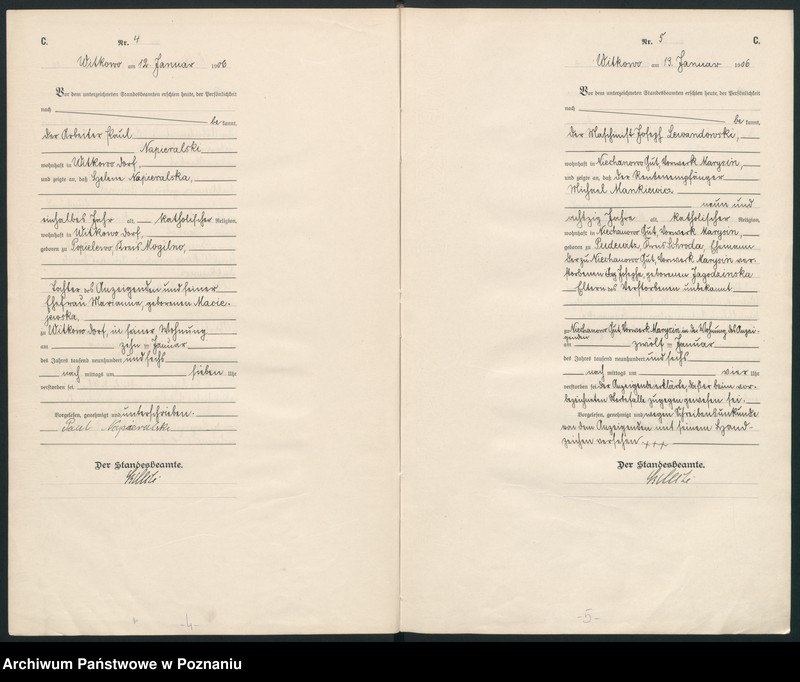 C.
Nr. 4
Witkowo am 12. Januar 1906
Vor dem unterzeichneten Standesbeamten erschien heute, der Persönlichkeit
nach
be kannt,
der Arbeiter Paul
Napieralski
wohnhaft in Witkowo Dorf,
und zeigte an, daß Helene Napieralska,
einhalbes Jahr alt, katholischer Religion,
wohnhaft in Witkowo Dorf,
geboren zu Popielewo, Kreis Mogilno,
Tochter des Anzeigenden und seiner
Ehefrau Marianna, geborenen Macie-
jewska,
zu Witkowo Dorf, in seiner Wohnung
am zehn ten Januar
des Jahres tausend neunhundert und sechs
nach mittags um sieben Uhr
verstorben sei.
Vorgelesen, genehmigt und unterschrieben.
Paul Napieralski
Der Standesbeamte.
-4-
Nr. 5
C.
Witkowo am 13. Januar 1906
Vor dem unterzeichneten Standesbeamten erschien heute, der Persönlichkeit
nach
be kannt,
der Maschinist Joseph Lewandowski,
wohnhaft in Niechanowo Gut, Vorwerk Maryzin,
und zeigte an, daß der Rentenempfänger
Michael Mankiewicz
neun und
achtzig Jahre alt, katholischer Religion,
wohnhaft in Niechanowo Gut, Vorwerk Maryzin,
geboren zu Kreis Schroda, Ehemann
der zu Niechanowo Gut, Vorwerk Maryzin ver-
storbenen Josepha, geborenen Jagodzinska
Eltern des Verstorbenen unbekannt
zu Niechanowo Gut, Vorwerk Maryzin in der Wohnung des Anzei-
genden
am zwölf ten Januar
des Jahres tausend neunhundert und sechs
nach mittags um vier Uhr
verstorben sei. Der Anzeigende erklärte, daß er beim vor-
bezeichneten Sterbefalle zugegen gewesen sei.
Vorgelesen, genehmigt und wegen Schreibensunkunde
von dem Anzeigenden mit seinem Hand-
zeichen versehen +++
Der Standesbeamte.
-5-
Archiwum Państwowe w Poznaniu